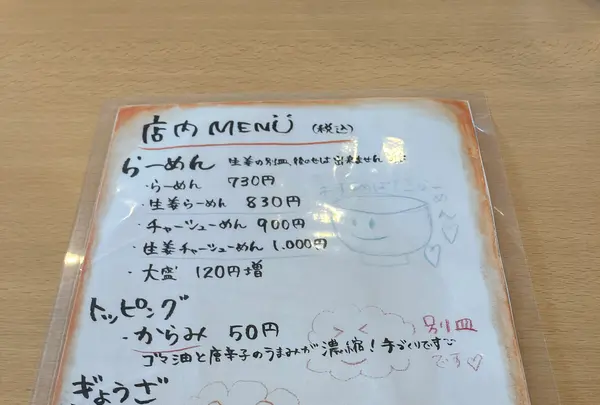 店内 MENU (税込)
らーめん 生姜の別皿、後のせは出来ません
・らーめん 730円
・生姜らーめん 830円
・チャーシューめん 900円
・生姜チャーシューめん 1,000円
・大盛 120円増
トッピング
・からみ 50円 別皿
ゴマ油と唐辛子のうまみが濃縮!手づくりです です♡
ぎょうざ